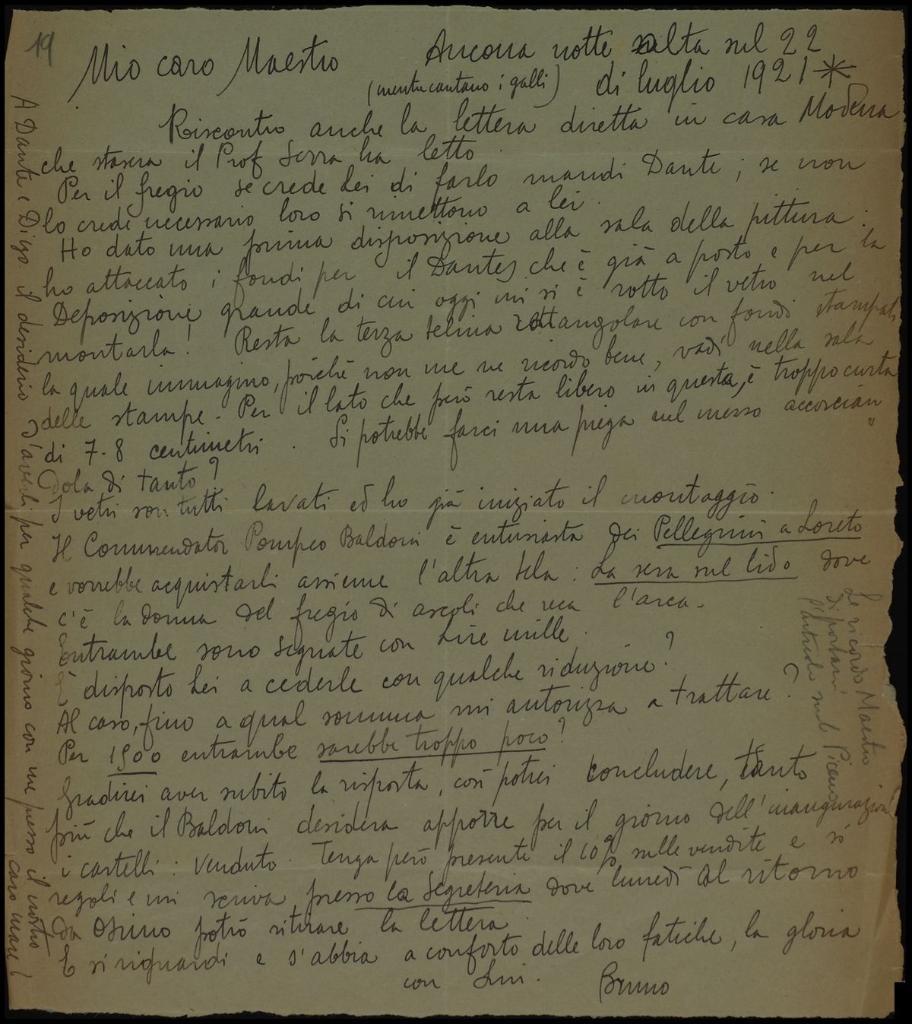 19
Mio caro Maestro Ancona notte alta sul 22
(mentre cantano i galli) di luglio 1921 *
Riscontro anche la lettera diretta in casa Modena
che stasera il Prof Serra ha letto.
Per il fregio se crede Lei di farlo mandi Dante; se non
lo crede necessario loro si rimettono a lei.
Ho dato una prima disposizione alla sala della pittura:
ho attaccato i fondi per il Dante che è già a posto e per la
Deposizione grande di cui oggi mi si è rotto il vetro nel
montarla! Resta la terza telina rettangolare con fondi stampati
la quale immagino, poiché non me ne ricordo bene, vadi nella sala
delle stampe. Per il lato che però resta libero in questa, è troppo curta
di 7-8 centimetri. Si potrebbe farci una piega nel mezzo accorcian„
dola di tanto?
I vetri son tutti lavati ed ho già iniziato il montaggio.
Il Commendator Pompeo Baldoni è entusiasta dei Pellegrini a Loreto
e vorrebbe acquistarli assieme l'altra tela: La sera sul lido dove
c'è la donna del fregio di Ascoli che reca l'arca.
Entrambe sono segnate con Lire mille.
È disposto Lei a cederle con qualche riduzione?
Al caso, fino a qual somma mi autorizza a trattare?
Per 1500 entrambe sarebbe troppo poco?
Gradirei aver subito la risposta, così potrei concludere, tanto
più che il Baldoni desidera apporre per il giorno dell'inaugurazione
i cartelli: Venduto. Tenga però presente il 10% sulle vendite e si
regoli e mi scriva presso la Segreteria dove lunedì al ritorno
da Osimo potrò ritirare la lettera.
E si riguardi e s'abbia a conforto delle loro fatiche, la gloria
con Lui. Bruno
A Dante e Diego il desiderio d'averli per qualche giorno con me presso il nostro
caro mare!
Le ricordo Maestro
di portarmi
l'articolo sul Piceno